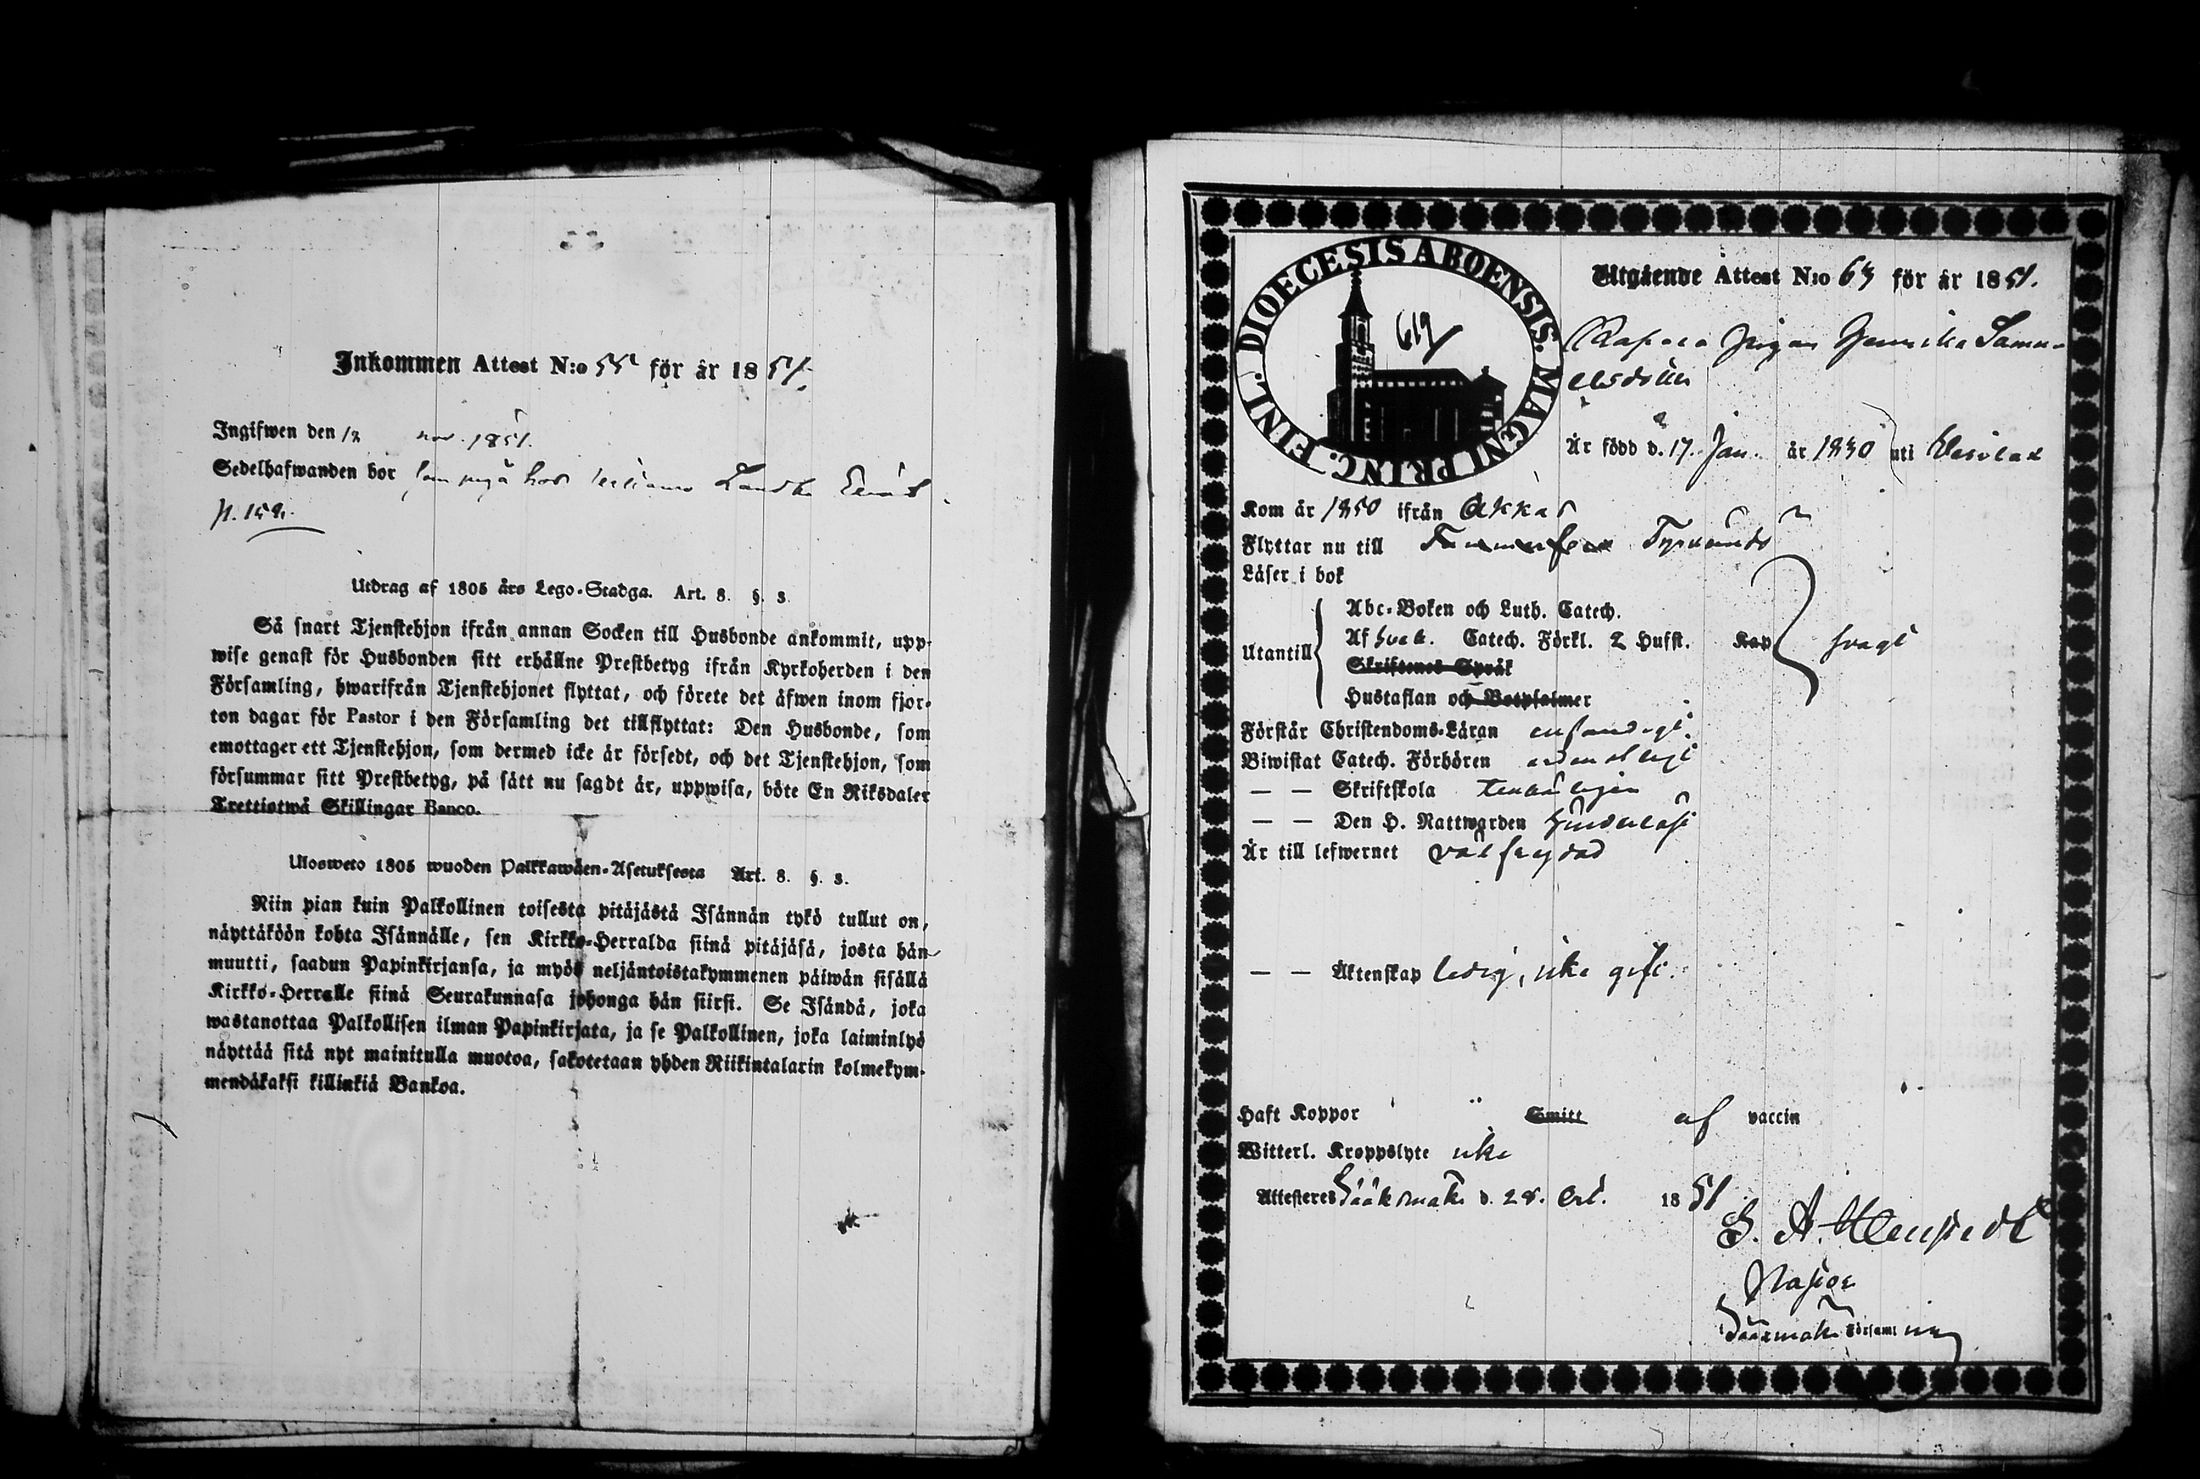 Inkommen Attest N:o 55 för år 1851.
Ingifwen den 12 nov. 1851.
Sedelhafwanden bor som piga hos
p. 159.
Utdrag af 1805 års Lego-Stadga. Art. 8. §. 3.
Så snart Tjenstehjon ifrån annan Socken till Husbonde ankommit, upp-
wise genast för Husbonden sitt erhållne Prestbetyg ifrån Kyrkoherden i den
Församling, hwarifrån Tjenstehjonet flyttat, och förete det äfwen inom fjor-
ton dagar för Pastor i den Församling det tillflyttat: Den Husbonde, som
emottager ett Tjenstehjon, som dermed icke är försedt, och det Tjenstehjon, som
försummar sitt Prestbetyg, på sätt nu sagdt är, uppwisa, böte En Riksdaler
Trettiotwå Skillingar Banco.
Ulosweto 1805 wuoden Palkkawäen-Asetuksesta Art. 8. §. 3.
Niin pian kuin Palkollinen toisesta pitäjästä Isännän tykö tullut on,
näyttäköön kohta Isännälle, sen Kirkko-Herralda siinä pitäjäsä, josta hän
muutti, saadun Papinkirjansa, ja myös neljäntoistakymmenen päiwän sisällä
Kirkko-Herralle siinä Seurakunnasa johonga hän siirsi. Se Isändä, joka
wastanottaa Palkollisen ilman Papinkirjata, ja se Palkollinen, joka laiminlyö
näyttää sitä nyt mainitulla muotoa, sakotetaan yhden Riikintalarin kolmekym-
mendäkaksi killinkiä Bankoa.
DIOECESIS ABOENSIS. MAGNI PRINC. FINL.
619
Utgående Attest N:o 63 för år 1851.
Pigan Samu-
elsdotter
Är född d. 17. Jan. år 1830 uti Vesilax
Kom år 1850 ifrån Akkas
Flyttar nu till Tammerfors Tyrvändö
Läser i bok
Utantill
Abc-Boken och Luth. Catech.
Af Sveb. Catech. Förkl. 2 Hufst. Kap svagt
Skriftenes Språk
Hustaflan och Botpsalmer
Förstår Christendoms-Läran enfaldigt.
Biwistat Catech. Förhören ordentligt
— — Skriftskola
— — Den H. Nattwarden
Är till lefwernet välfrejdad
— — Äktenskap ledig, icke gift.
Haft Koppor Smitt af vaccin
Witterl. Kroppslyte icke
Attesteres Sääksmäki d. 28. Oct. 1851
Pastor
i Sääxmäki Församling